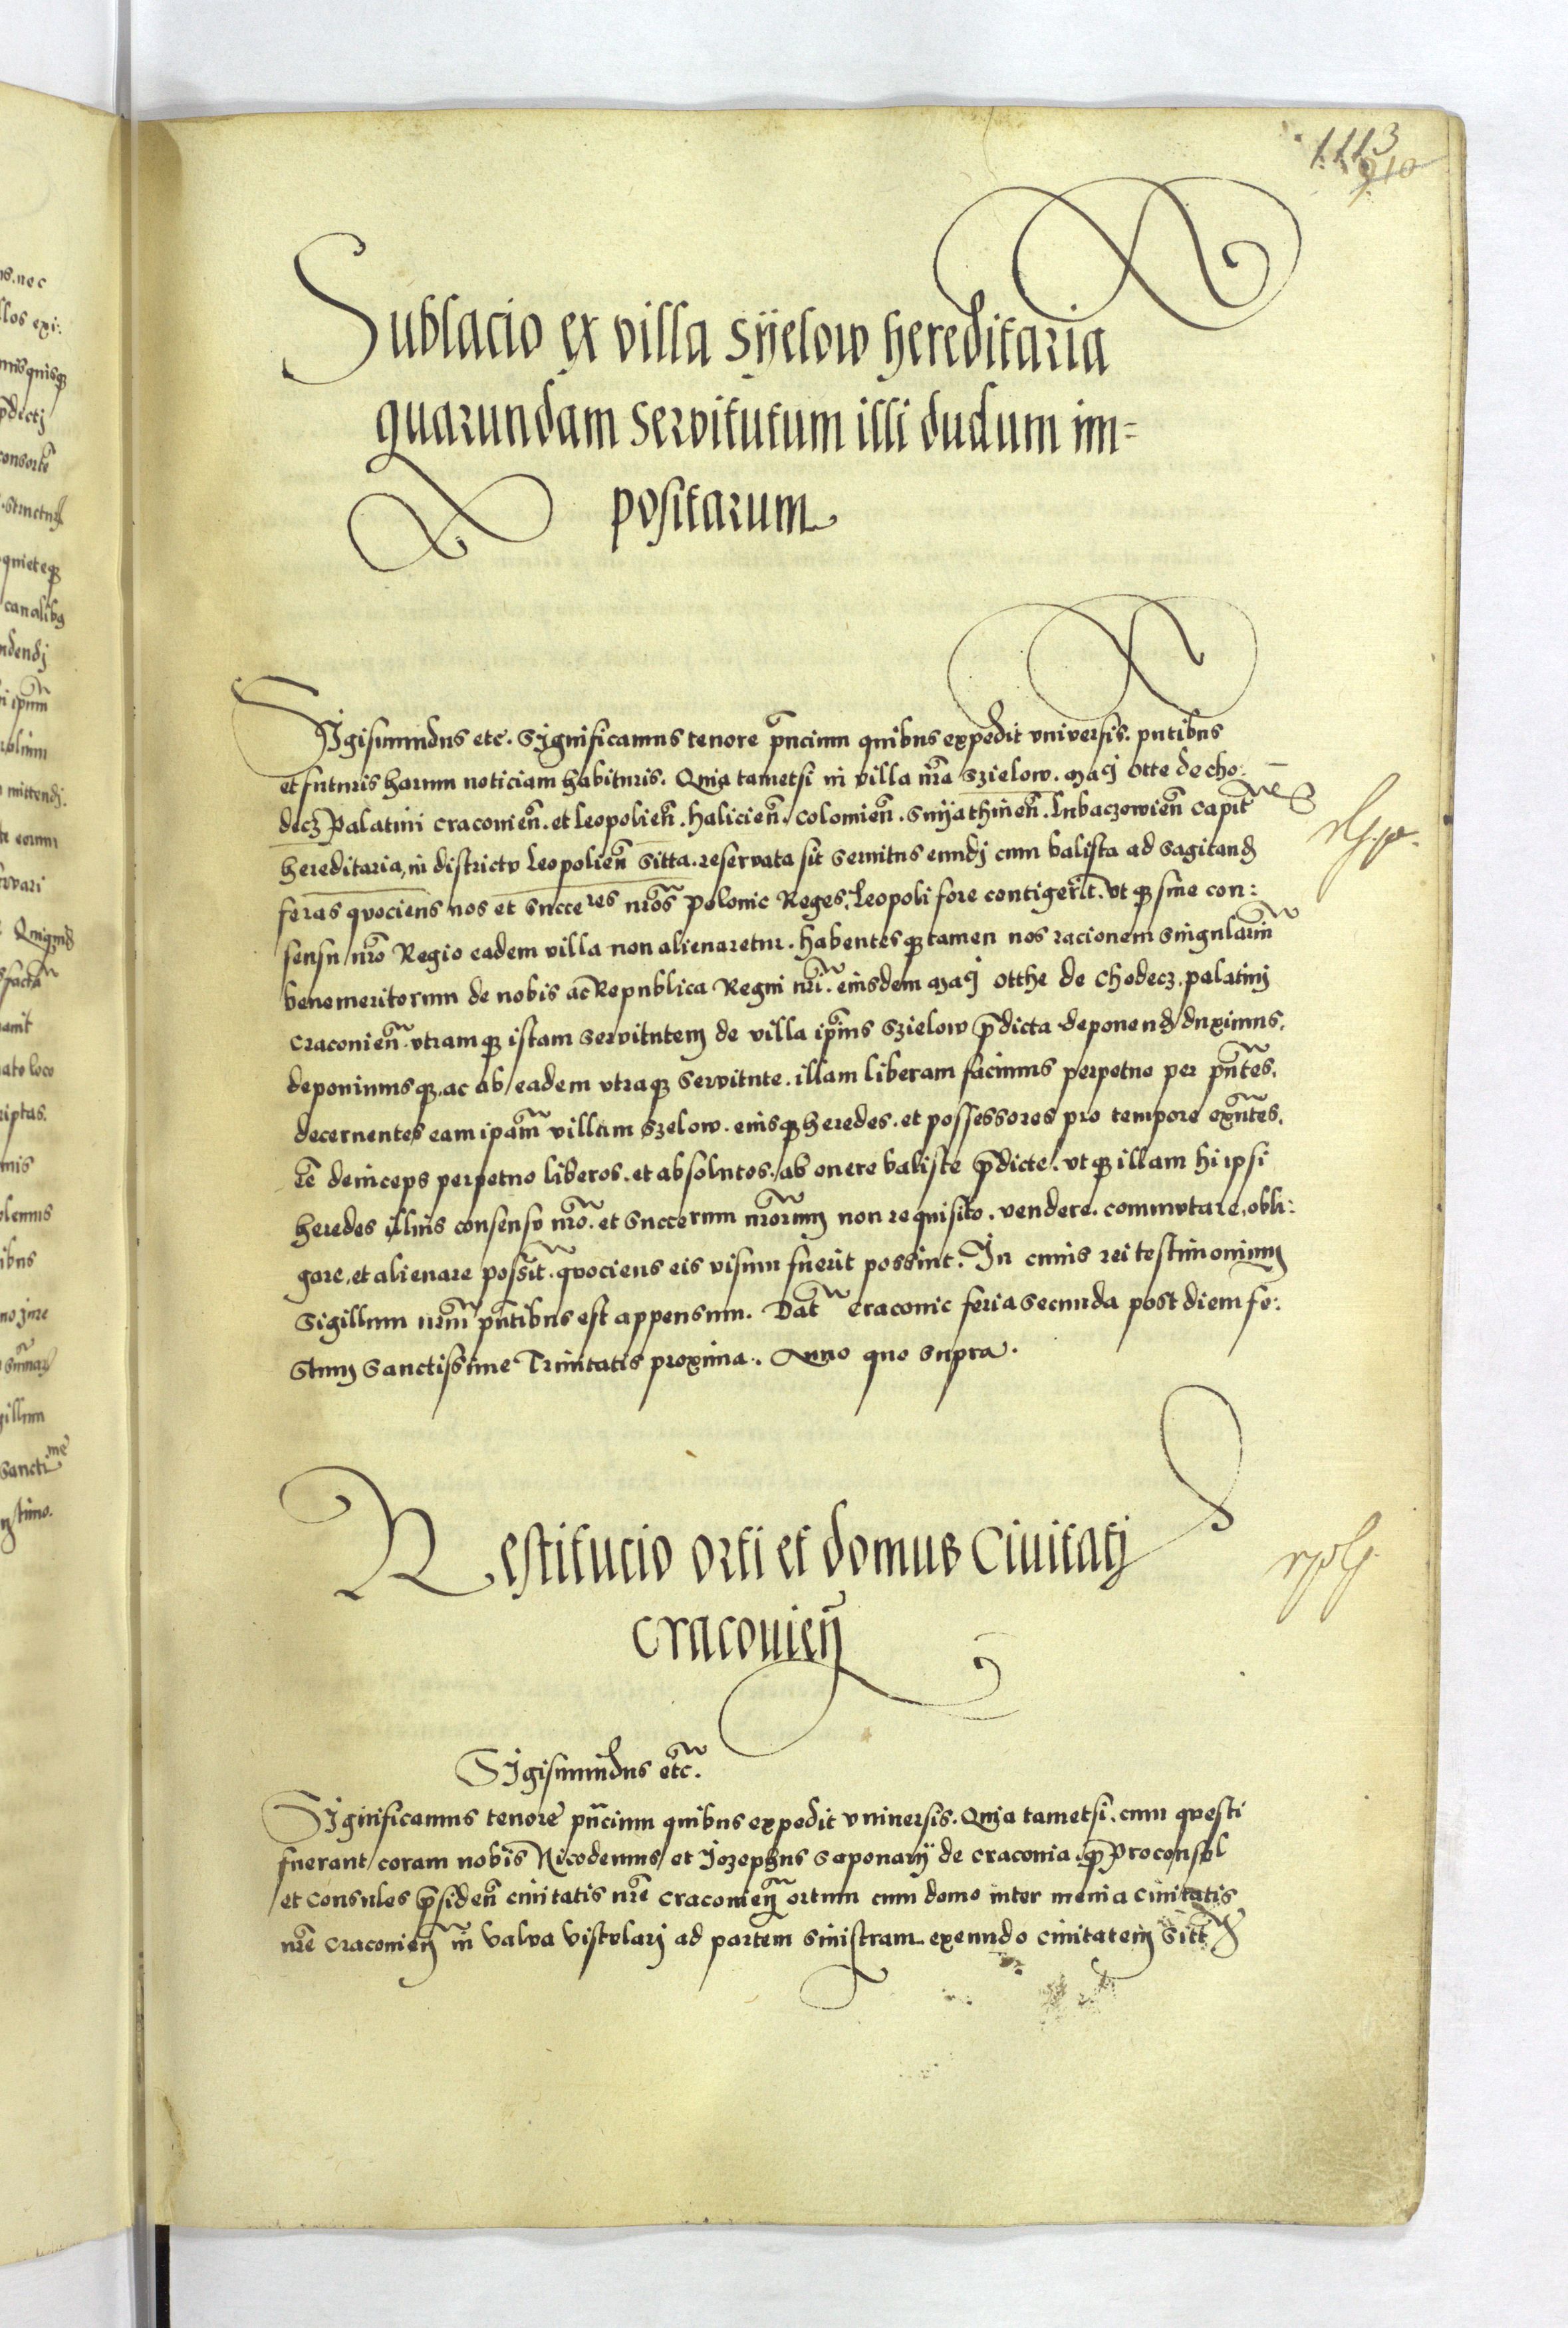 1113
910
Sublacio ex villa Sÿelow hereditaria
quarundam servitutum illi dudum im=
positarum
Sigismundus etc. Significamus tenore pñcium quibus expedit universis. pñtibus
et futuris harum noticiam habituris. Quia tametsi in villa nr̃a Szielow. Mаgci Otte de Cho:
decz Palatini Cracovień. et Leopolień. Halicień. Colomień. Snÿathinień. Lubaczowień Capitnei
hereditaria, in districtu Leopolień sitta. reservata sit servitus eundj cum balista ad sagitand
feras quociens nos et succeres nr̃os Polonie Reges, Leopoli fore contigerit. ut qз sine con:
sensu nr̃o Regio eadem villa non alienaretur. Habentes qз tamen nos racionem singularium
benemeritorum de nobis ac Republica Regni nr̃i. eiusdem Magci Otthe de Chodecz. palatinj
Cracovień. utramqз istam servitutem de villa ipius Szielow p̃dicta deponend duximus.
deponimusqз. ac ab eadem utraqз servitute. illam liberam facimus perpetuo per pñtes.
decernentes eam ipam villam Szelow. eiusqз heredes. et possessores pro tempore exñtes.
ee deinceps perpetuo liberos. et absolutos. ab onere baliste p̃dicte. utqз illam hi ipsi
heredes illius consensu nr̃o. et succerum nr̃orum non requisito. vendere. commutare, obli:
gare, et alienare possit. quociens eis visum fuerit possint. In cuius rei testimonium
Sigillum nr̃m pñtibus est appensum. Dat Cracovie feria secunda post diem fe:
stum Sanctissime Trinitatis proxima. Anno quo supra.
Restitucio orti et domus Civitatj
Cracovień
Sigismundus etc.
Significamus tenore pñcium quibus expedit universis. Quia tametsi. cum questi
fuerant coram nobis Nicodemus et Jozephus saponarÿ de Cracovia. qз Proconsul
et Consules p̃siden̄ civitatis nr̃e Cracovień ortum cum domo inter menia civitatis
nr̃e Cracovień in valva vistularj ad partem sinistram exeundo civitatem sitt